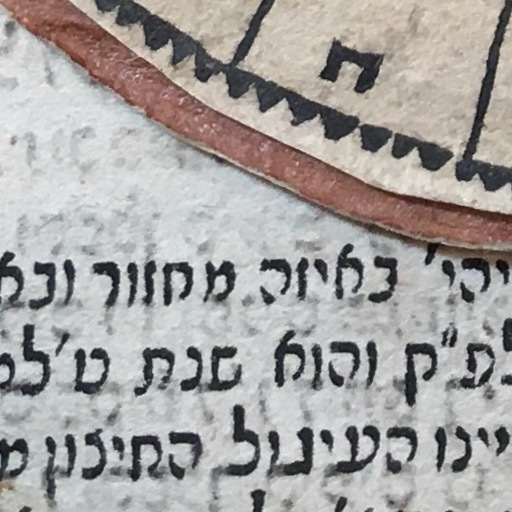 ח
יהי' באיזה מחזור ובא
לפ"ק והוא שנת ט'לכ
יינו העיגול התיכון מ